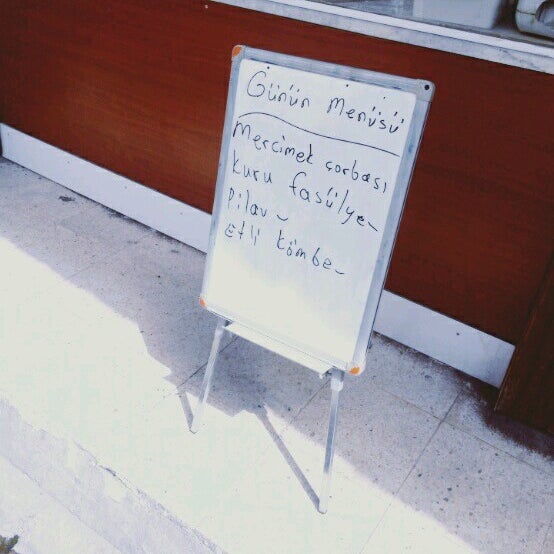 Günün Menüsü
Mercimek çorbası
kuru fasülye
Pilav
Etli kömbe